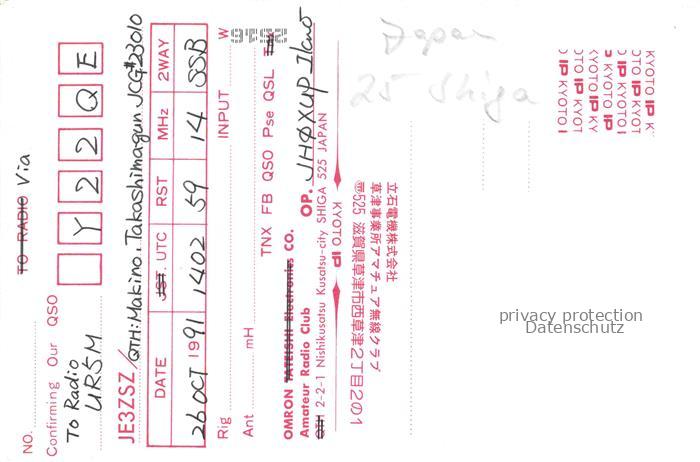 NO.
TO RADIO Via
Confirming Our QSO
Y 2 2 Q E
To Radio
UR5M
JE3ZSZ / QTH: Makino. Takashimagun JCG#23010
DATE JST. UTC RST MHz 2WAY
26 OCT 1991 1402 59 14 SSB
Rig INPUT W
Ant mH
TNX FB QSO Pse QSL
OMRON TATEISHI Electronics CO.
Amateur Radio Club OP.
QTH 2-2-1 Nishikusatsu Kusatsu-city SHIGA 525 JAPAN
KYOTO
立石電機株式会社
草津事業所アマチュア無線クラブ
〠525 滋賀県草津市西草津2丁目2の1
Japan
25 Shiga
privacy protection
Datenschutz